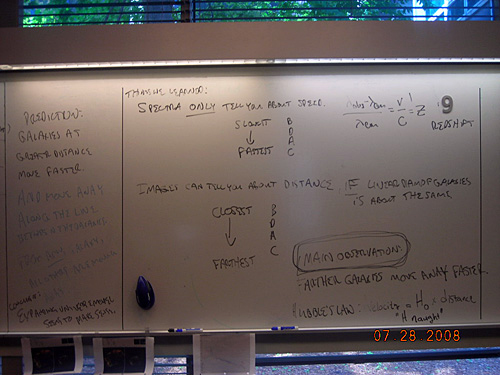 PREDICTION:
GALAXIES AT
GREATER DISTANCE
MOVE FASTER.
AND MOVE AWAY
ALONG THE LINE
THINGS WE LEARNED:
SPECTRA ONLY TELL YOU ABOUT SPEED.
SLOWEST B
D
A
FASTEST C
λobs - λem = v = z
λem C
9
REDSHIFT
IMAGES CAN TELL YOU ABOUT DISTANCE IF LINEAR DIAM OF GALAXIES
IS ABOUT THE SAME
CLOSEST B
D
A
C
FARTHEST
MAIN OBSERVATION:
FARTHER GALAXIES MOVE AWAY FASTER.
HUBBLE'S LAW: velocity = H₀ x distance
"H naught"
07 28 2008